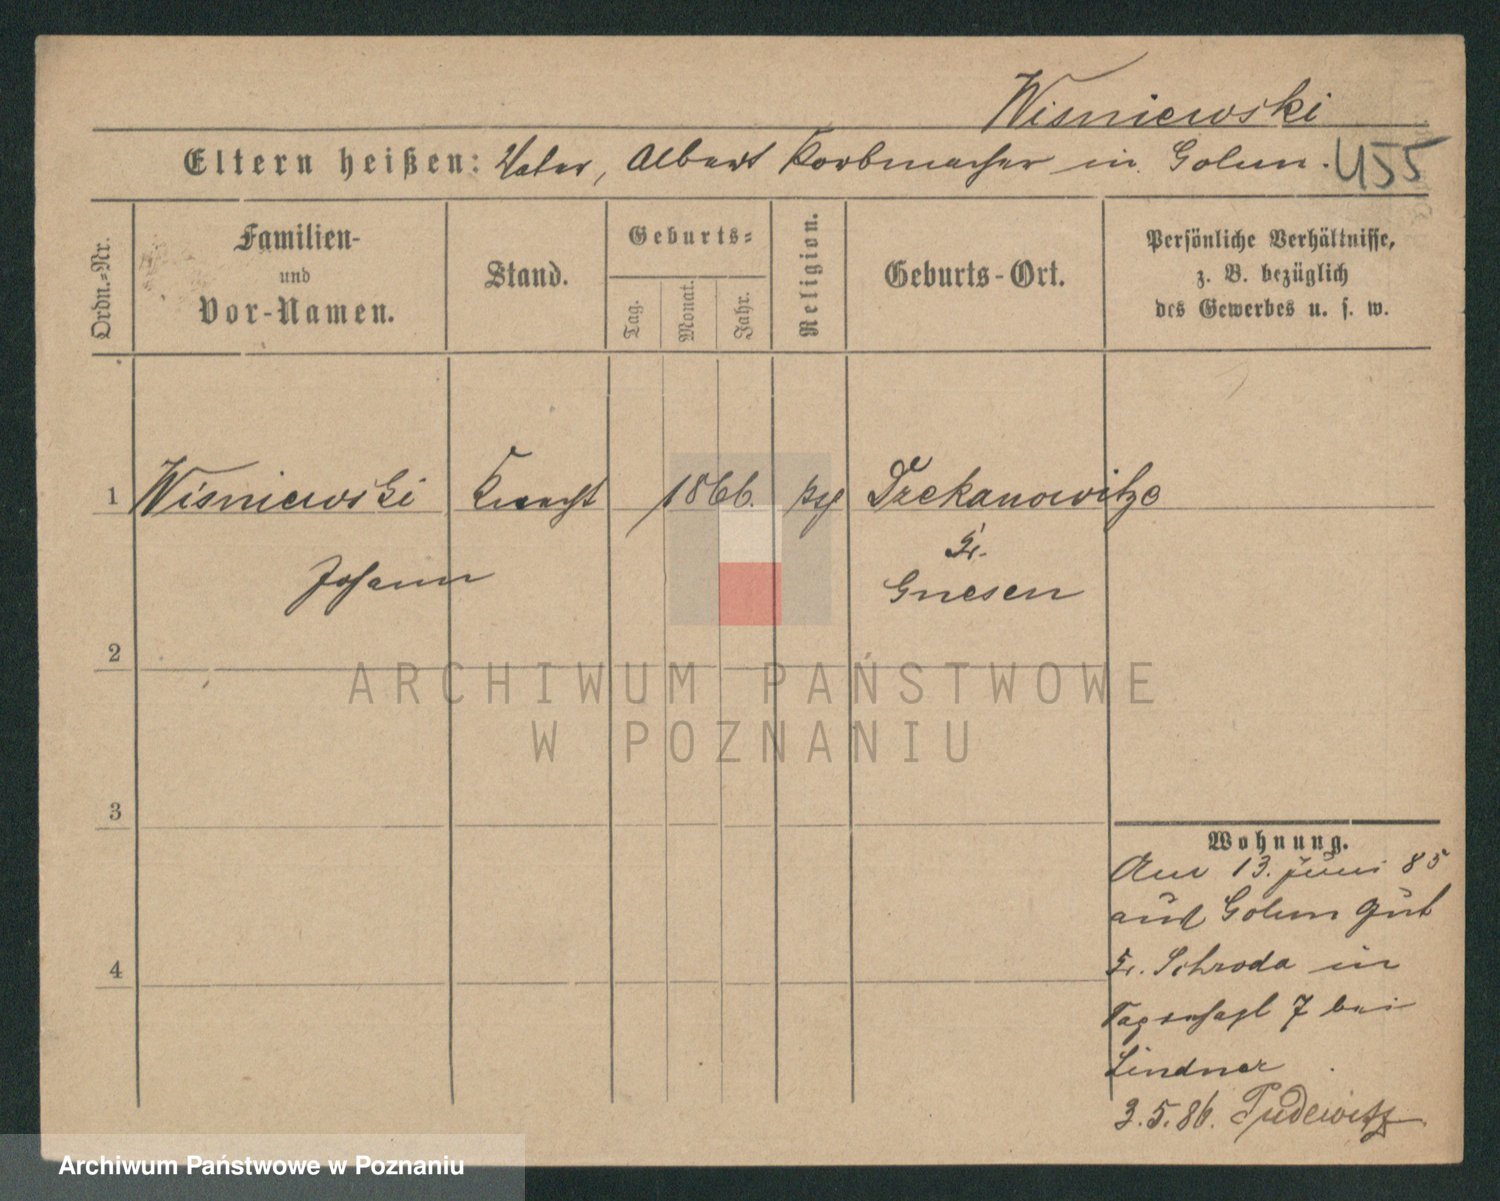 Wisniewski
Eltern heißen: Vater, Albert Korbmacher in Golun.
455
Ordn.-Nr.
Familien-
und
Vor-Namen.
Stand.
Geburts-
Tag.
Monat.
Jahr.
Religion.
Geburts-Ort.
Persönliche Verhältnisse,
z. B. bezüglich
des Gewerbes u. s. w.
1 Wisniewski Knecht 1866.
Johann
Gnesen
2
ARCHIWUM PAŃSTWOWE
W POZNANIU
3
4
Wohnung.
Am 13. Juni 85
aus Golun Gut
Kr. Schroda in
7 bei
Lindner
3.5.86. Pudewitz
Archiwum Państwowe w Poznaniu